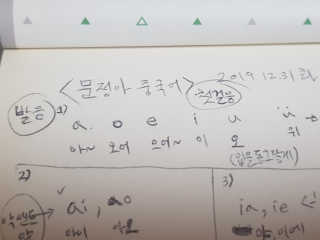 <문정아 중국어> 첫걸음 2019.12.31 화
발음 1)
a. o e i u ü
아~ 오어 으어~ 이 우 위
(입을 동그랗게)
2) 3)
ai, ao ia, ie
아이 아오